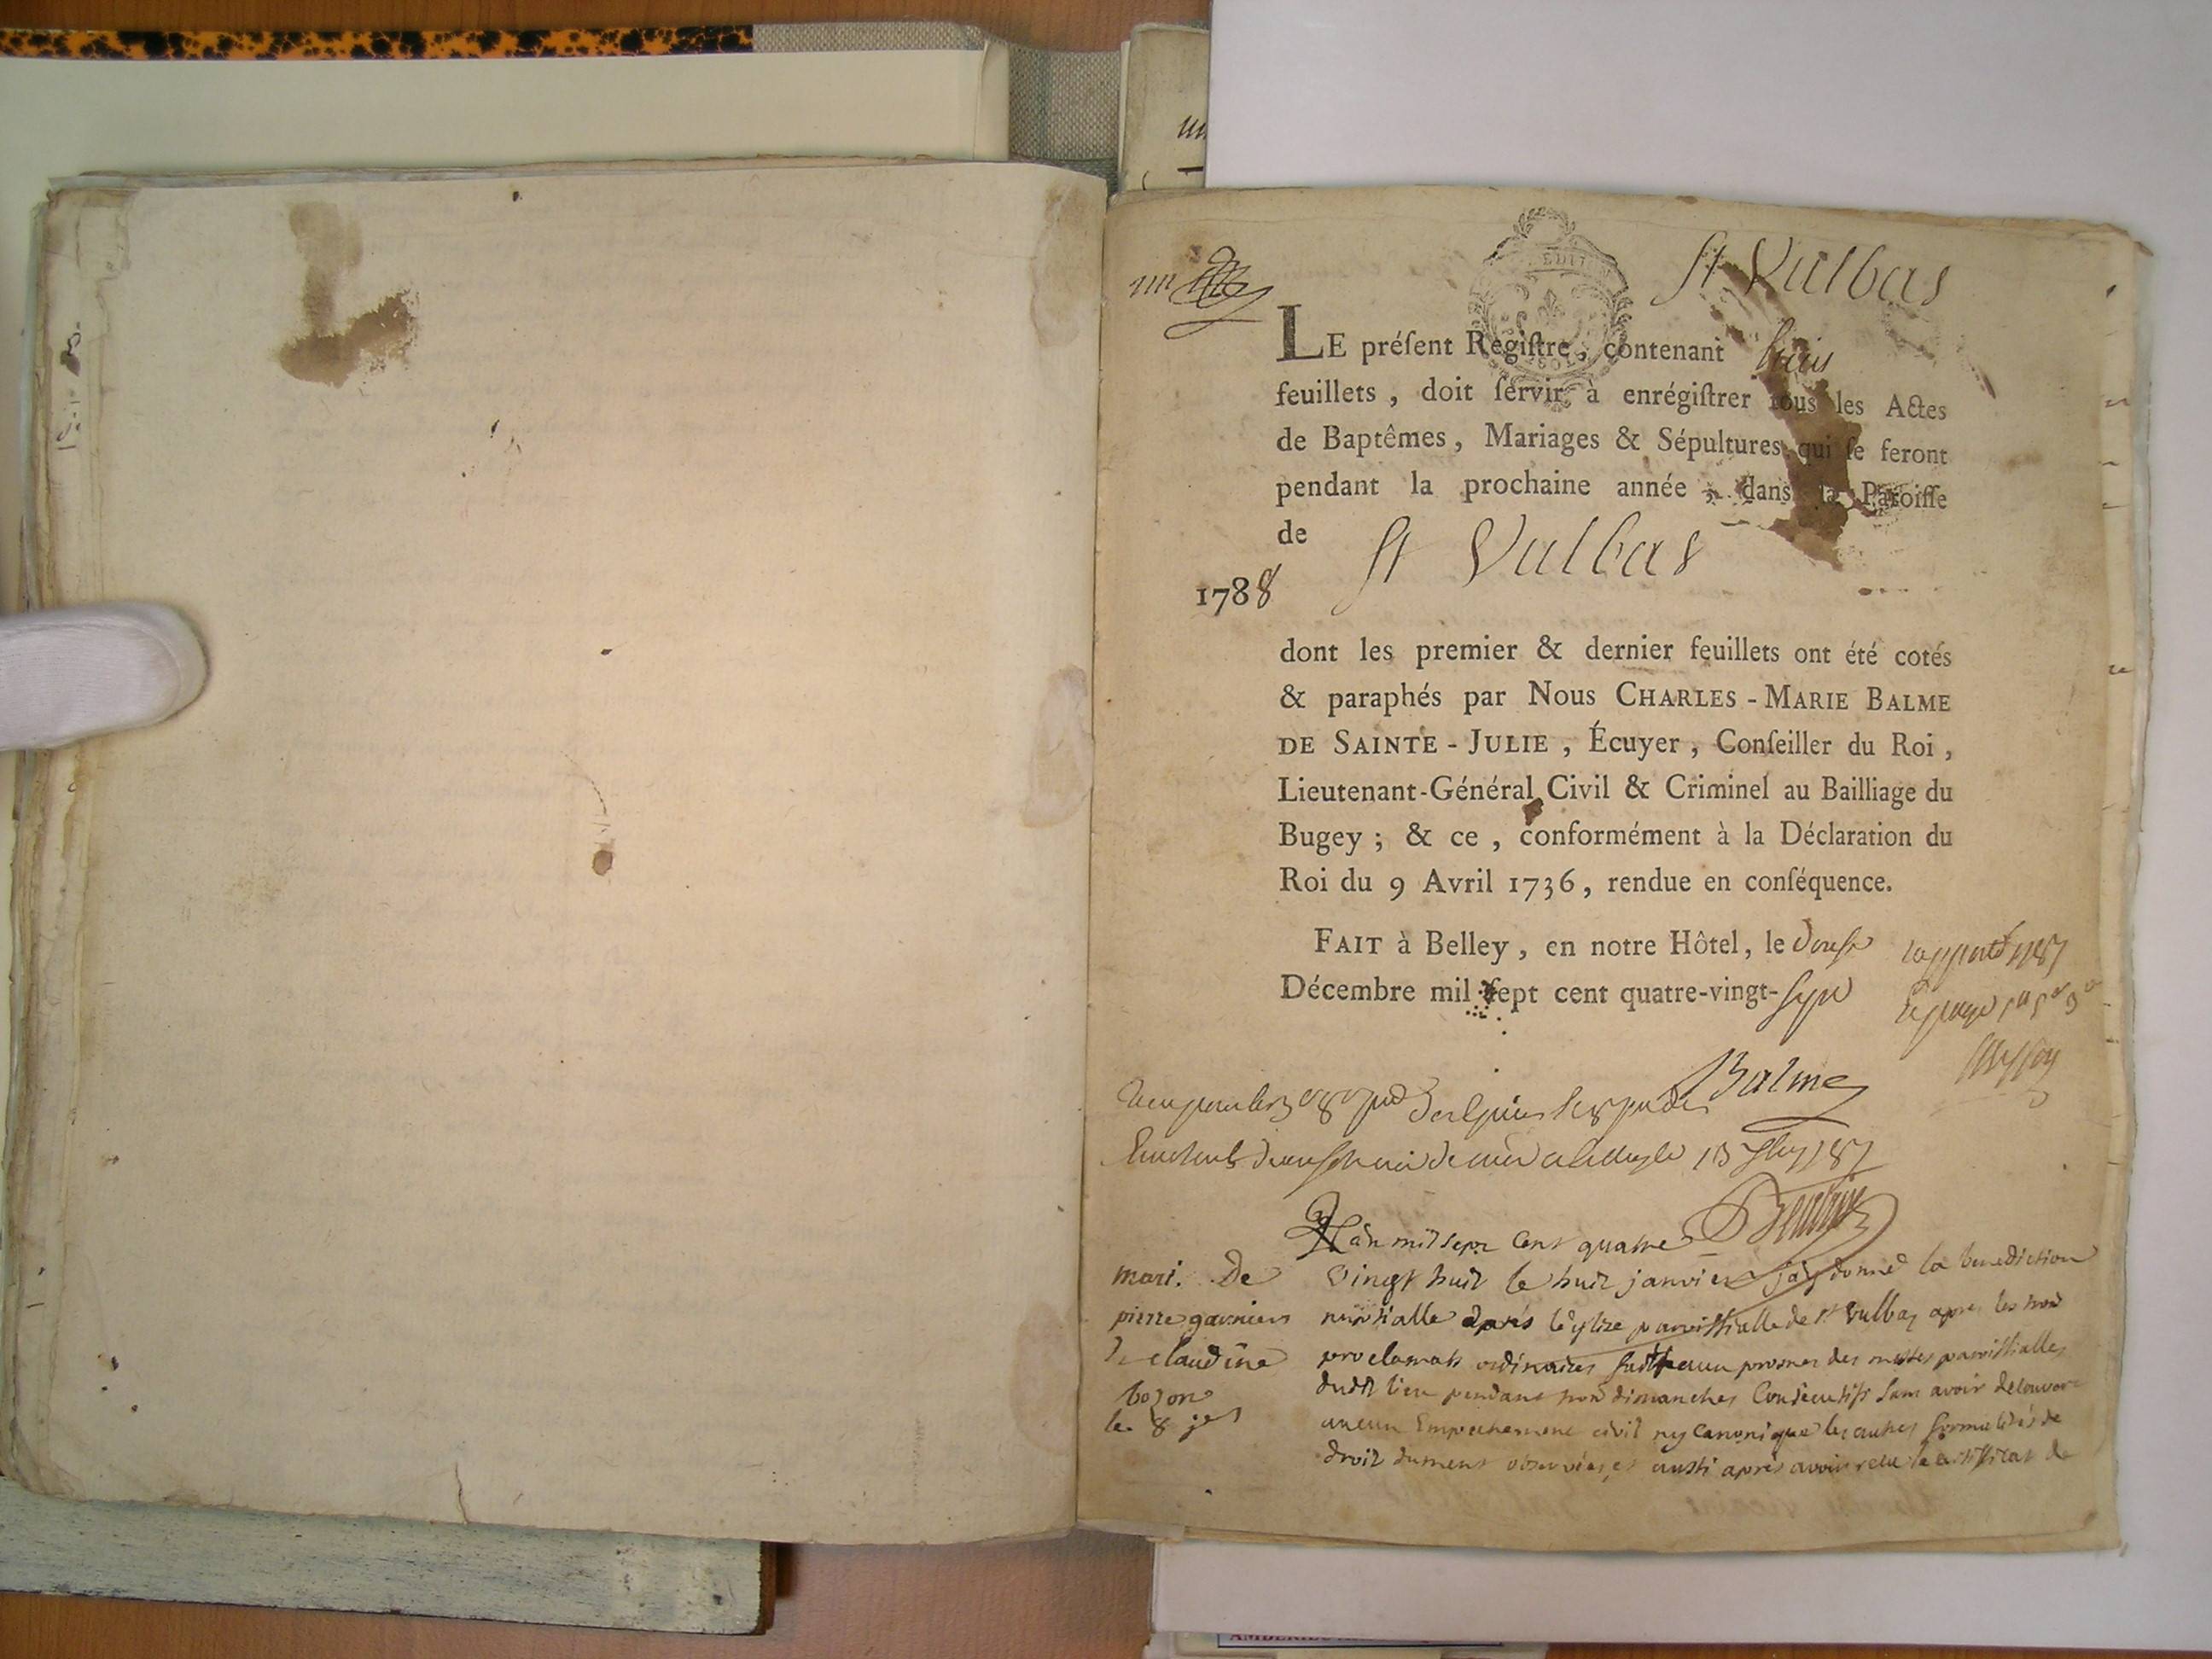 St Vulbas
LE préſent Regiſtre, contenant huit
feuillets, doit ſervir à enrégiſtrer tous les Actes
de Baptêmes, Mariages & Sépultures qui ſe feront
pendant la prochaine année, dans la Paroiſſe
de St Vulbas
1788
dont les premier & dernier feuillets ont été cotés
& paraphés par Nous CHARLES-MARIE BALME
DE SAINTE-JULIE, Écuyer, Conſeiller du Roi,
Lieutenant-Général Civil & Criminel au Bailliage du
Bugey; & ce, conformément à la Déclaration du
Roi du 9 Avril 1736, rendue en conſéquence.
FAIT à Belley, en notre Hôtel, le douse
Décembre mil ſept cent quatre-vingt-sept
Balme
L'an mil sept cent quatre
vingt huit le huit janvier jay donné la benediction
nuptialle paroissialle de st Vulbas apres les trois
proclamats ordinaires faits aux prosnes des messes paroissialles
dudit lieu pendant trois dimanches Consecutifs sans avoir découvert
aucun Empechement civil ny Canonique les autres formalités de
droit dument observées, et aussi aprés avoir recu le certificat de
mari. De
pierre garnier
et claudine
bozon
le 8 jer